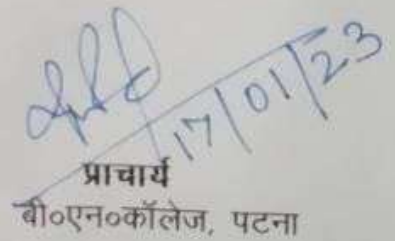 17/01/23
प्राचार्य
बी०एन०कॉलेज, पटना